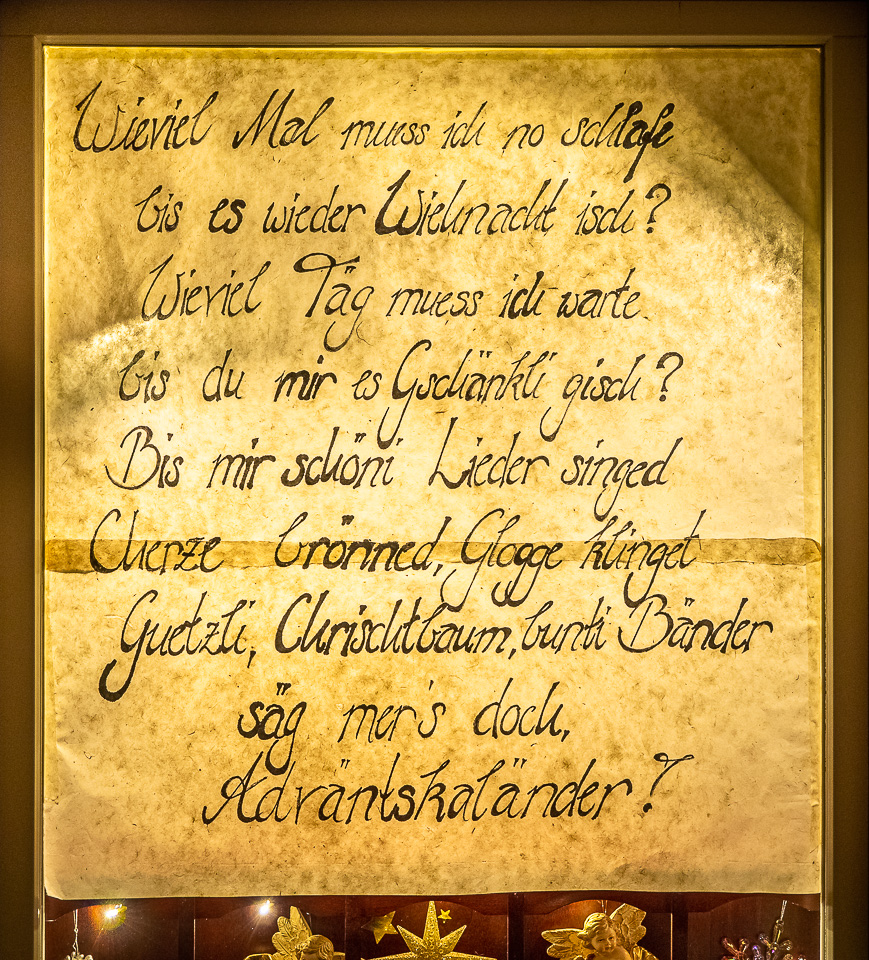 Wieviel Mal muess ich no schlafe
bis es wieder Wiehnacht isch?
Wieviel Täg muess ich warte
bis du mir es Gschänkli gisch?
Bis mir schöni Lieder singed
Cherze brönned, Glogge klinget
Guetzli, Chrischtbaum, bunti Bänder
säg mer's doch,
Advräntskaländer?